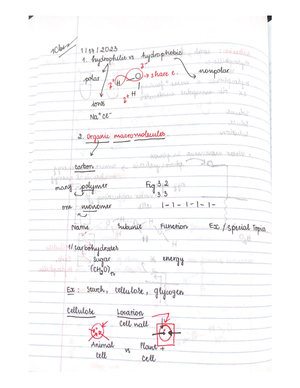 1/17/2023
1. hydrophilic vs hydrophobic
polar
share e-
nonpolar
ions
Na+ Cl-
2. Organic macromolecules
carbon
many polymer Fig 3.2
3.3
one monomer 1-1-1-1-1-
Name Subunit Function Ex/special Topic
1/ carbohydrates
sugar energy
(CH2O)n
Ex: Starch, cellulose, glycogen
Cellulose Location
Cell wall
Animal vs Plant
cell Cell